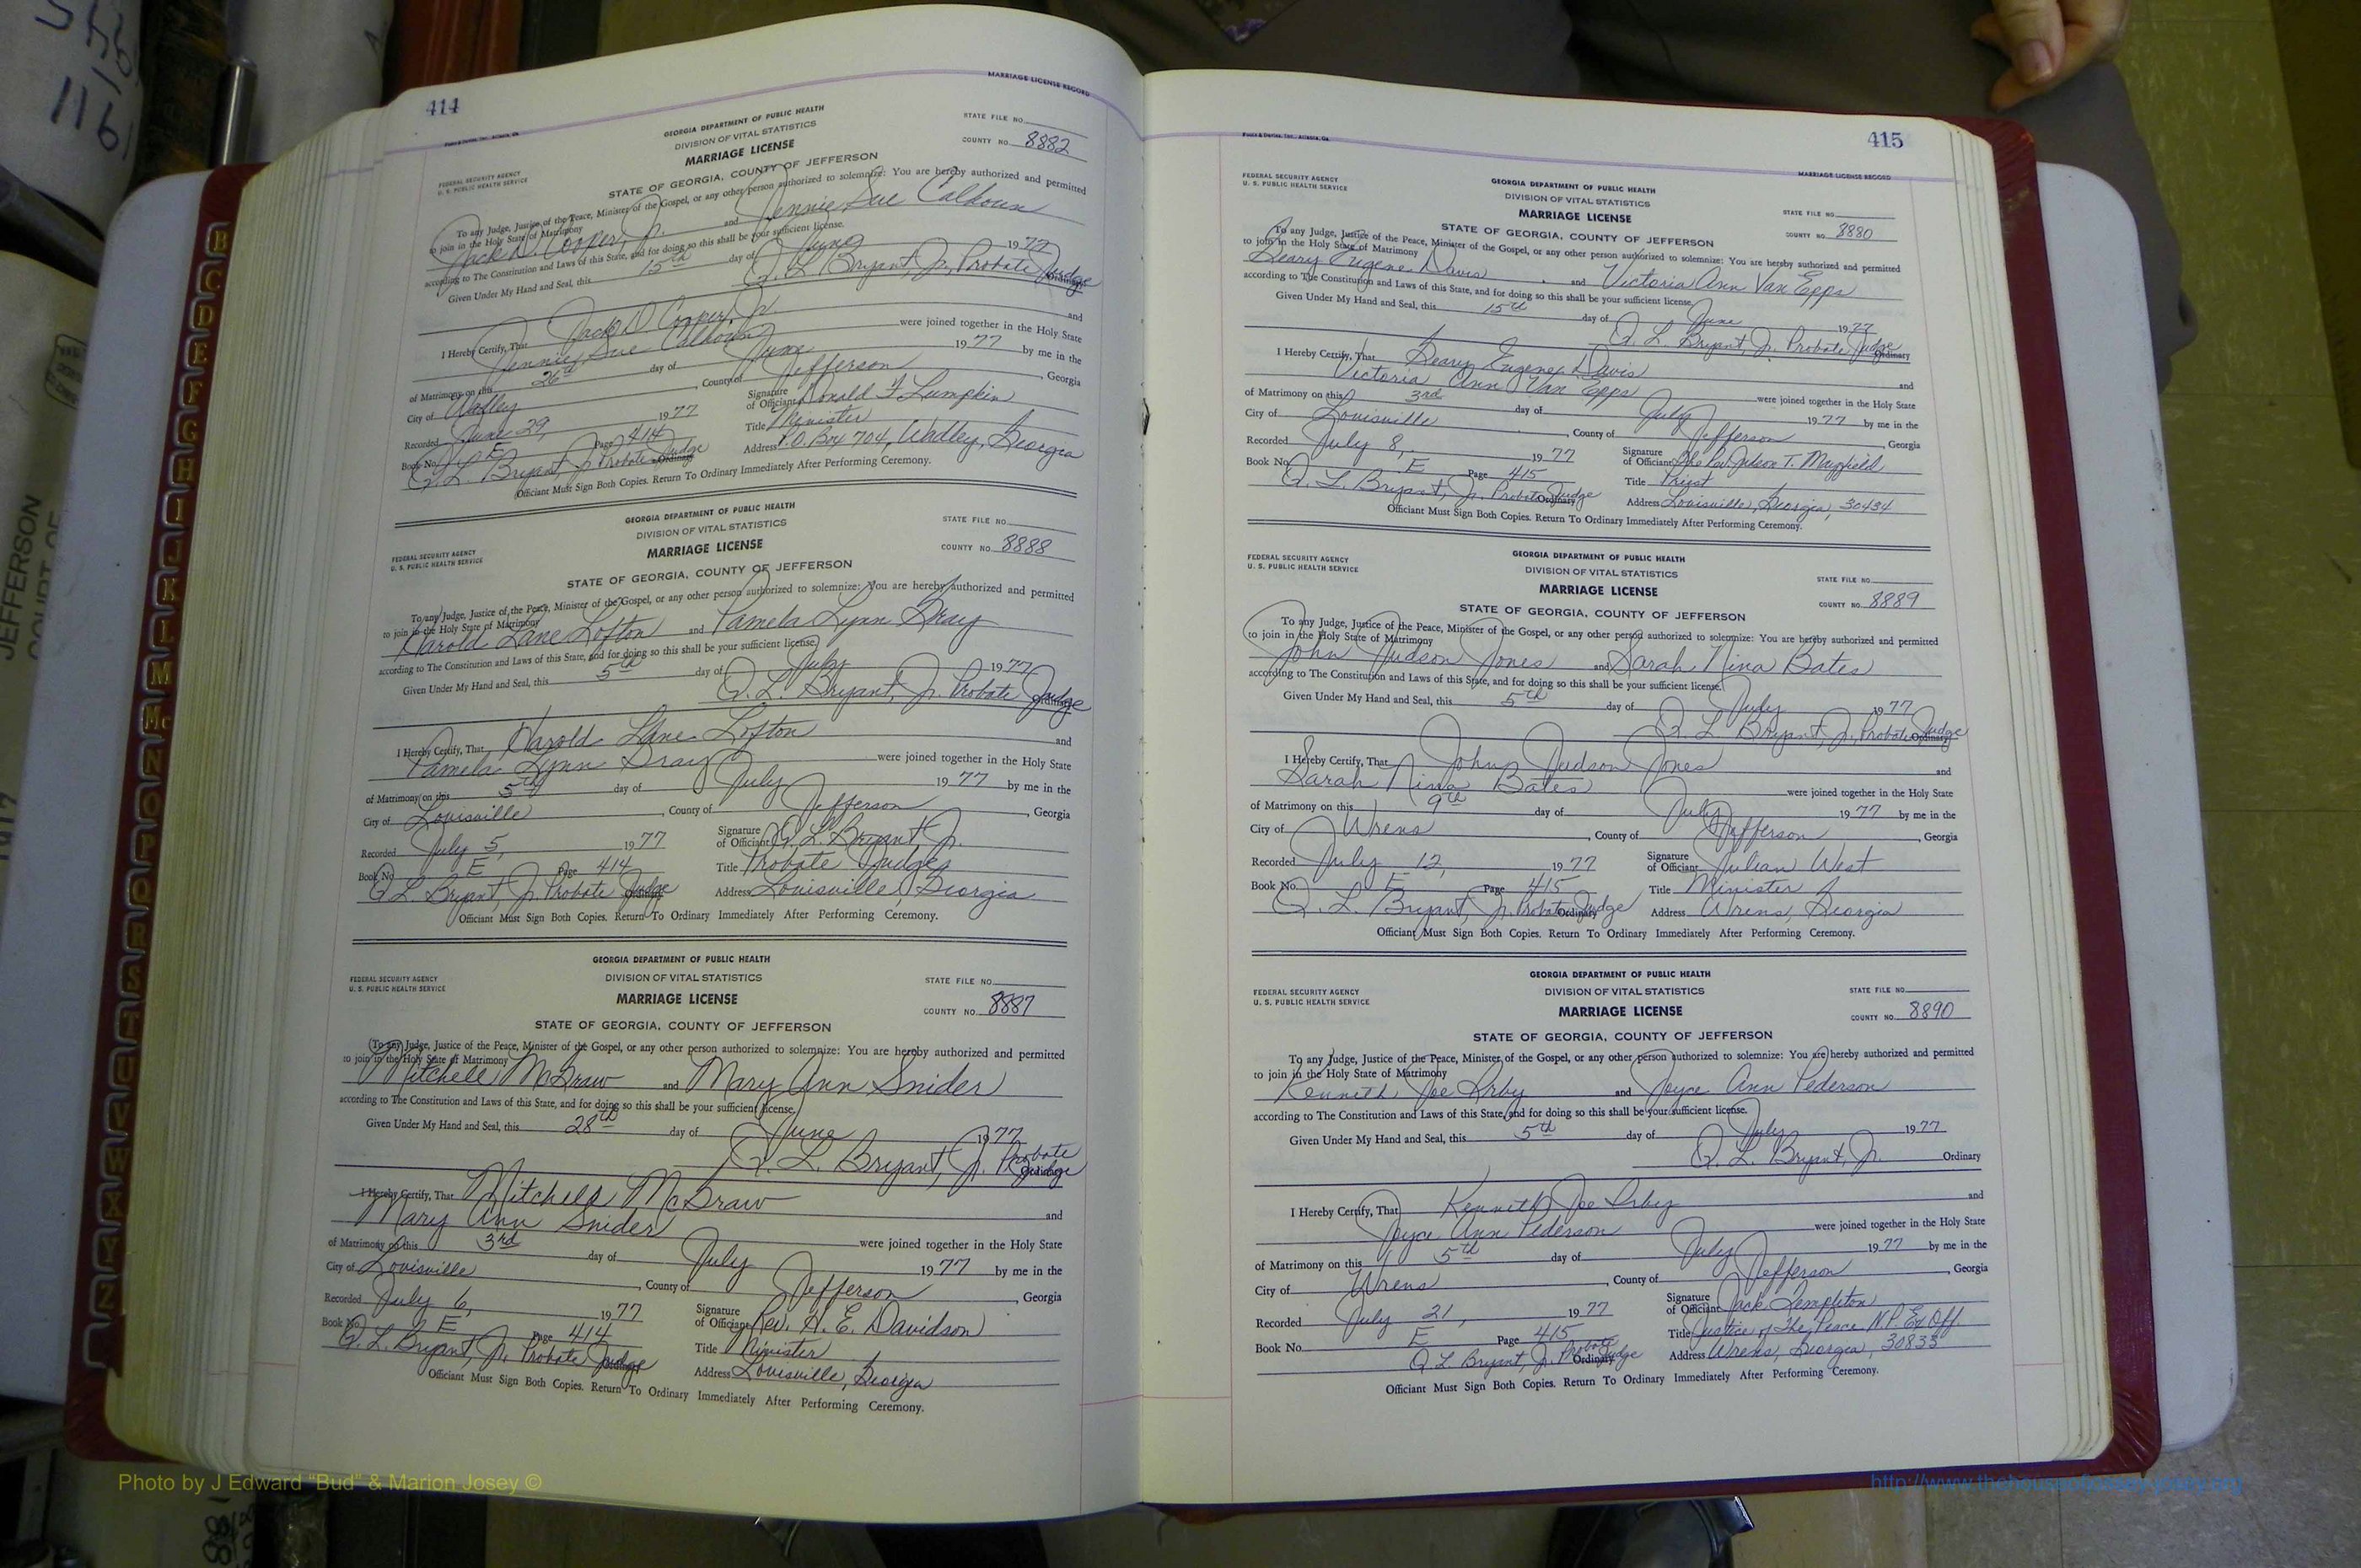 414
MARRIAGE LICENSE RECORD
GEORGIA DEPARTMENT OF PUBLIC HEALTH
DIVISION OF VITAL STATISTICS
MARRIAGE LICENSE
STATE OF GEORGIA, COUNTY OF JEFFERSON
FEDERAL SECURITY AGENCY
U. S. PUBLIC HEALTH SERVICE
STATE FILE NO.
COUNTY NO. 8882
To any Judge, Justice of the Peace, Minister of the Gospel, or any other person authorized to solemnize: You are hereby authorized and permitted
to join in the Holy State of Matrimony
Jack D. Cooper, Jr. and Jennie Sue Calhoun
according to The Constitution and Laws of this State, and for doing so this shall be your sufficient license.
Given Under My Hand and Seal, this 15th day of June 1977
Q. L. Bryant, Jr. Probate Judge Ordinary
I Hereby Certify, That Jack D Cooper, Jr. and
Jennie Sue Calhoun were joined together in the Holy State
of Matrimony on this 26th day of June 1977 by me in the
City of Wadley, County of Jefferson, Georgia
Recorded June 29, 1977 Signature of Officiant Ronald F Lumpkin
Book No. E Page 414 Title Minister
Q. L. Bryant, Jr Probate Judge Ordinary Address P.O. Box 704, Wadley, Georgia
Officiant Must Sign Both Copies. Return To Ordinary Immediately After Performing Ceremony.
GEORGIA DEPARTMENT OF PUBLIC HEALTH
DIVISION OF VITAL STATISTICS
MARRIAGE LICENSE
STATE OF GEORGIA, COUNTY OF JEFFERSON
FEDERAL SECURITY AGENCY
U. S. PUBLIC HEALTH SERVICE
STATE FILE NO.
COUNTY NO. 8888
To any Judge, Justice of the Peace, Minister of the Gospel, or any other person authorized to solemnize: You are hereby authorized and permitted
to join in the Holy State of Matrimony
Harold Lane Lofton and Pamela Lynn Gray
according to The Constitution and Laws of this State, and for doing so this shall be your sufficient license.
Given Under My Hand and Seal, this 5th day of July 1977
Q. L. Bryant, Jr. Probate Judge Ordinary
I Hereby Certify, That Harold Lane Lofton and
Pamela Lynn Gray were joined together in the Holy State
of Matrimony on this 5th day of July 1977 by me in the
City of Louisville, County of Jefferson, Georgia
Recorded July 5, 1977 Signature of Officiant Q. L. Bryant Jr.
Book No. E Page 414 Title Probate Judge
Q L. Bryant, Jr. Probate Judge Ordinary Address Louisville, Georgia
Officiant Must Sign Both Copies. Return To Ordinary Immediately After Performing Ceremony.
GEORGIA DEPARTMENT OF PUBLIC HEALTH
DIVISION OF VITAL STATISTICS
MARRIAGE LICENSE
STATE OF GEORGIA, COUNTY OF JEFFERSON
FEDERAL SECURITY AGENCY
U. S. PUBLIC HEALTH SERVICE
STATE FILE NO.
COUNTY NO. 8887
To any Judge, Justice of the Peace, Minister of the Gospel, or any other person authorized to solemnize: You are hereby authorized and permitted
to join in the Holy State of Matrimony
Mitchell McGraw and Mary Ann Snider
according to The Constitution and Laws of this State, and for doing so this shall be your sufficient license.
Given Under My Hand and Seal, this 28th day of June 1977
Q. L. Bryant, Jr. Probate Judge Ordinary
I Hereby Certify, That Mitchell McGraw and
Mary Ann Snider were joined together in the Holy State
of Matrimony on this 3rd day of July 1977 by me in the
City of Louisville, County of Jefferson, Georgia
Recorded July 6, 1977 Signature of Officiant Rev. H. E. Davidson
Book No. E Page 414 Title Minister
Q. L. Bryant, Jr. Probate Judge Ordinary Address Louisville, Georgia
Officiant Must Sign Both Copies. Return To Ordinary Immediately After Performing Ceremony.
415
MARRIAGE LICENSE RECORD
FEDERAL SECURITY AGENCY
U. S. PUBLIC HEALTH SERVICE
GEORGIA DEPARTMENT OF PUBLIC HEALTH
DIVISION OF VITAL STATISTICS
MARRIAGE LICENSE
STATE OF GEORGIA, COUNTY OF JEFFERSON
STATE FILE NO.
COUNTY NO. 8880
To any Judge, Justice of the Peace, Minister of the Gospel, or any other person authorized to solemnize: You are hereby authorized and permitted
to join in the Holy State of Matrimony
Geary Eugene Davis and Victoria Ann Van Epps
according to The Constitution and Laws of this State, and for doing so this shall be your sufficient license.
Given Under My Hand and Seal, this 15th day of June 1977
Q. L. Bryant, Jr. Probate Judge Ordinary
I Hereby Certify, That Geary Eugene Davis and
Victoria Ann Van Epps were joined together in the Holy State
of Matrimony on this 3rd day of July 1977 by me in the
City of Louisville, County of Jefferson, Georgia
Recorded July 8, 1977 Signature of Officiant The Rev. Judson T. Mayfield
Book No. E Page 415 Title Priest
Q. L. Bryant, Jr. Probate Judge Ordinary Address Louisville, Georgia, 30434
Officiant Must Sign Both Copies. Return To Ordinary Immediately After Performing Ceremony.
FEDERAL SECURITY AGENCY
U. S. PUBLIC HEALTH SERVICE
GEORGIA DEPARTMENT OF PUBLIC HEALTH
DIVISION OF VITAL STATISTICS
MARRIAGE LICENSE
STATE OF GEORGIA, COUNTY OF JEFFERSON
STATE FILE NO.
COUNTY NO. 8889
To any Judge, Justice of the Peace, Minister of the Gospel, or any other person authorized to solemnize: You are hereby authorized and permitted
to join in the Holy State of Matrimony
John Judson Jones and Sarah Nina Bates
according to The Constitution and Laws of this State, and for doing so this shall be your sufficient license.
Given Under My Hand and Seal, this 5th day of July 1977
Q. L. Bryant, Jr., Probate Judge Ordinary
I Hereby Certify, That John Judson Jones and
Sarah Nina Bates were joined together in the Holy State
of Matrimony on this 9th day of July 1977 by me in the
City of Wrens, County of Jefferson, Georgia
Recorded July 12, 1977 Signature of Officiant Julian West
Book No. E Page 415 Title Minister
Q. L. Bryant, Jr. Probate Judge Ordinary Address Wrens, Georgia
Officiant Must Sign Both Copies. Return To Ordinary Immediately After Performing Ceremony.
FEDERAL SECURITY AGENCY
U. S. PUBLIC HEALTH SERVICE
GEORGIA DEPARTMENT OF PUBLIC HEALTH
DIVISION OF VITAL STATISTICS
MARRIAGE LICENSE
STATE OF GEORGIA, COUNTY OF JEFFERSON
STATE FILE NO.
COUNTY NO. 8890
To any Judge, Justice of the Peace, Minister of the Gospel, or any other person authorized to solemnize: You are hereby authorized and permitted
to join in the Holy State of Matrimony
Kenneth Joe Irby and Joyce Ann Pederson
according to The Constitution and Laws of this State, and for doing so this shall be your sufficient license.
Given Under My Hand and Seal, this 5th day of July 1977
Q. L. Bryant, Jr. Ordinary
I Hereby Certify, That Kenneth Joe Irby and
Joyce Ann Pederson were joined together in the Holy State
of Matrimony on this 5th day of July 1977 by me in the
City of Wrens, County of Jefferson, Georgia
Recorded July 21, 1977 Signature of Officiant Jack Templeton
Book No. E Page 415 Title Justice of The Peace N.P. Ex Off.
Q L Bryant, Jr. Probate Judge Ordinary Address Wrens, Georgia, 30833
Officiant Must Sign Both Copies. Return To Ordinary Immediately After Performing Ceremony.
B
C
D
E
F
G
H
I
J
K
L
M
Mc
N
O
P
Q
R
S
T
U
V
W
X
Y
Z
1161
JEFFERSON
COURT OF
Photo by J Edward "Bud" & Marion Josey ©